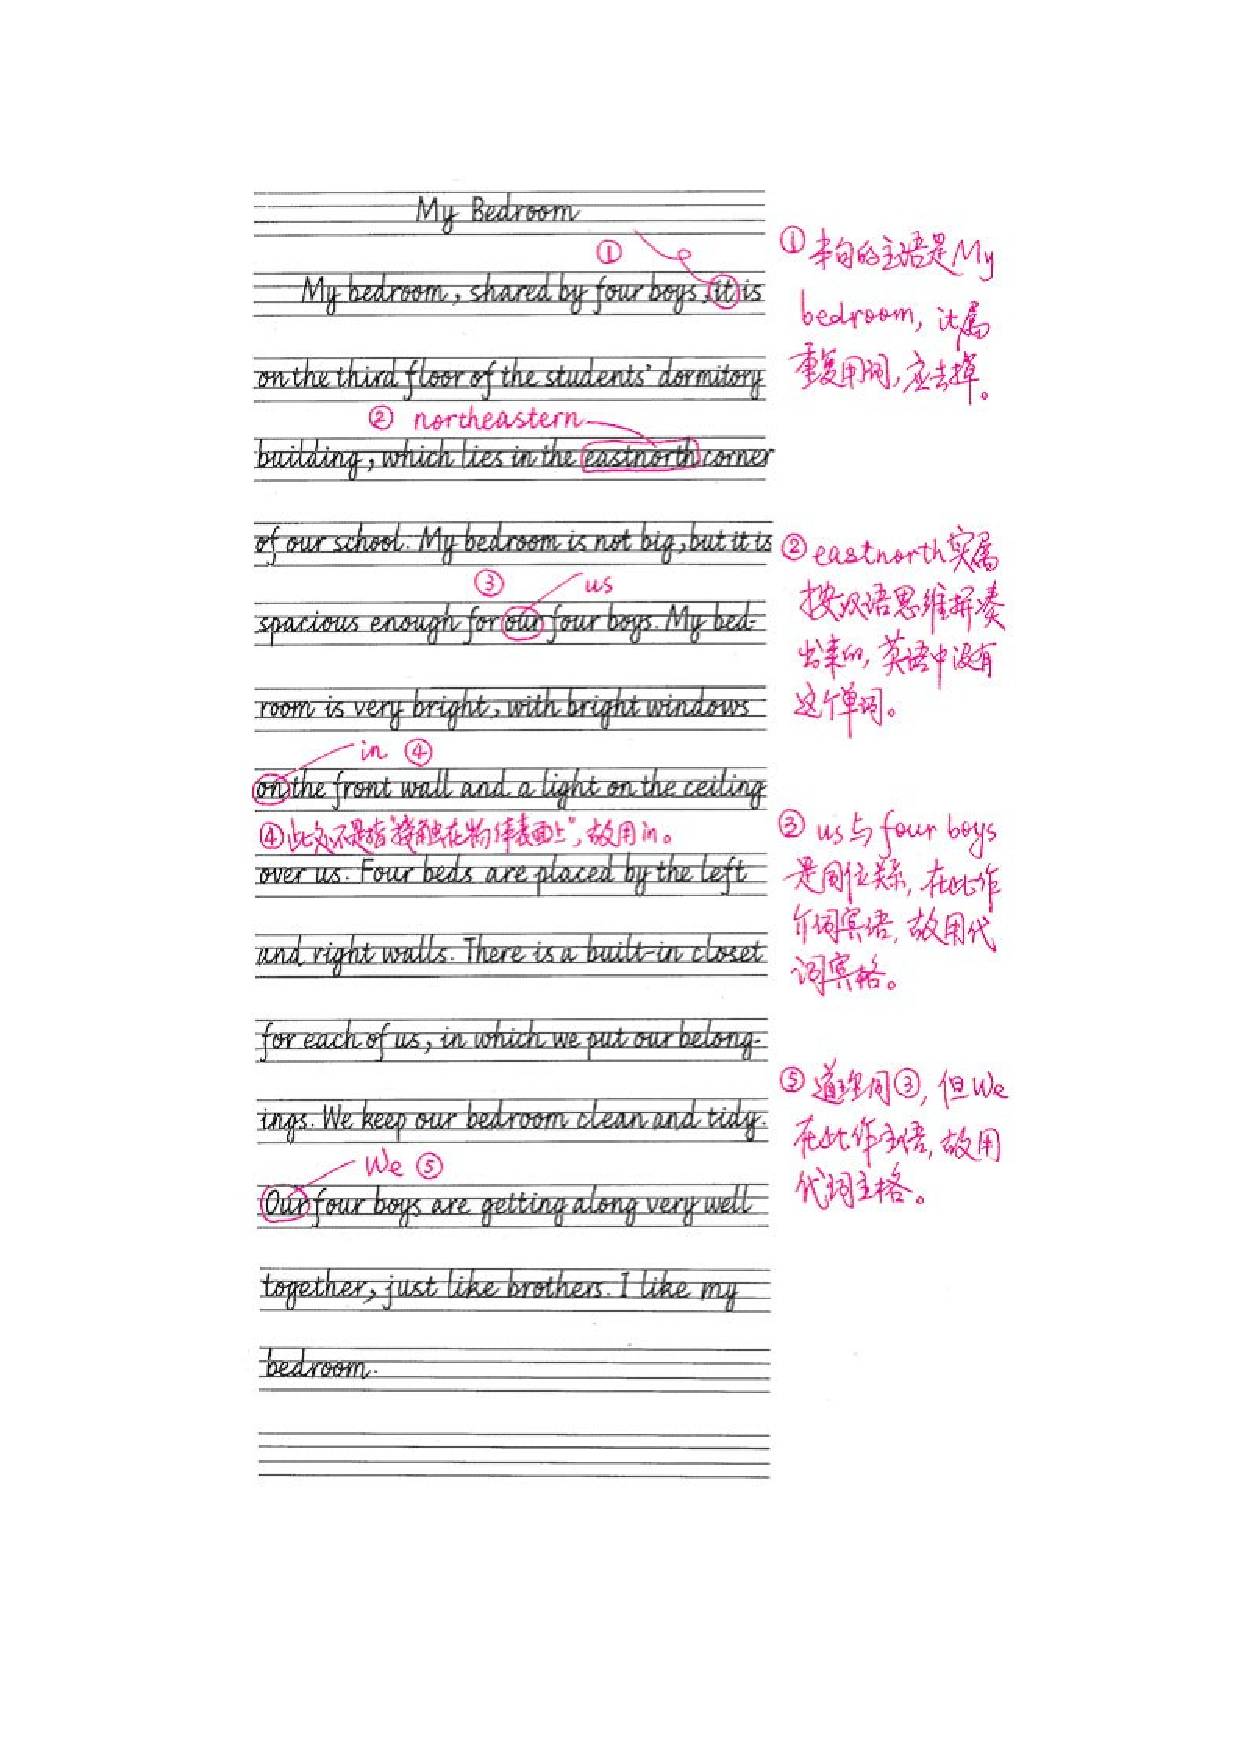 My Bedroom
①
My bedroom, shared by four boys, it is
on the third floor of the students' dormitory
② northeastern
building, which lies in the eastnorth corner
of our school. My bedroom is not big, but it is
③ us
spacious enough for our four boys. My bed-
room is very bright, with bright windows
in ④
on the front wall and a light on the ceiling
④此处不是指“接触在物体表面上”,故用in。
over us. Four beds are placed by the left
and right walls. There is a built-in closet
for each of us, in which we put our belong-
ings. We keep our bedroom clean and tidy.
We ⑤
Our four boys are getting along very well
together, just like brothers. I like my
bedroom.
①本句的主语是My
bedroom, it属
重复用词,应去掉。
②eastnorth实属
按汉语思维拼凑
出来的,英语中没有
这个单词。
③us与four boys
是同位关系,在此作
介词宾语,故用代
词宾格。
⑤道理同③,但We
在此作主语,故用
代词主格。